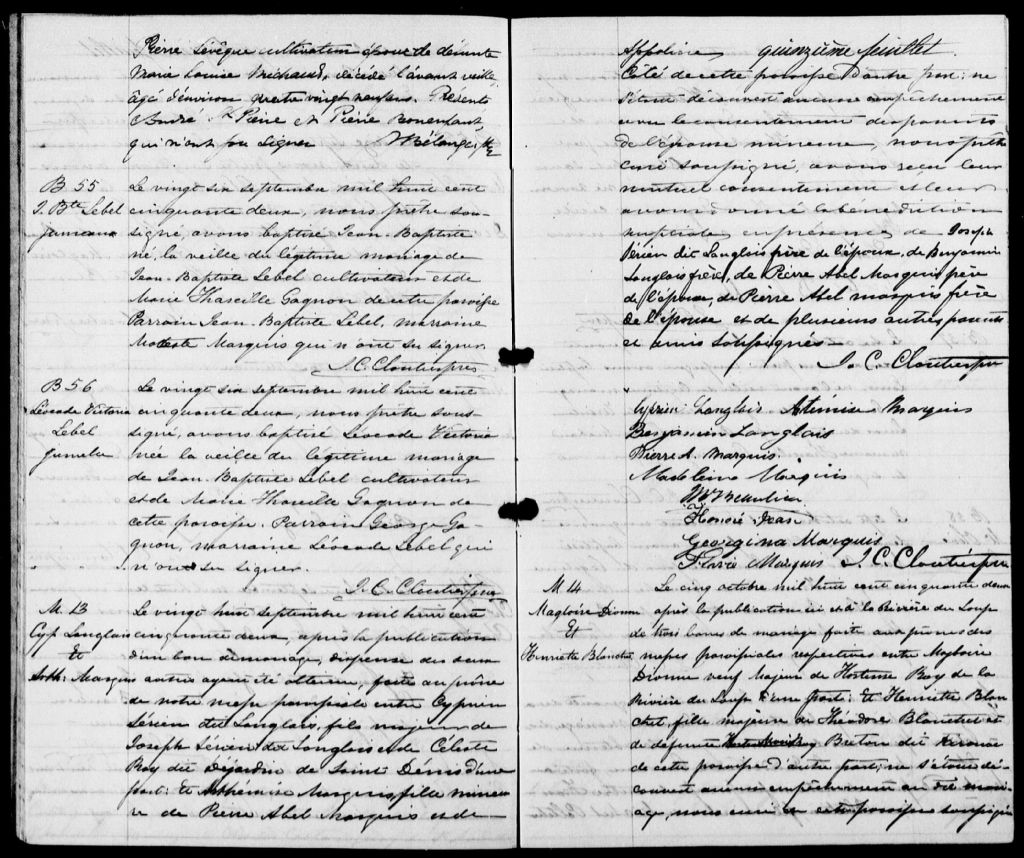 Pierre Lévêque cultivateur époux de défunte
Marie Louise Michaud, décédé l'avant veille
âgé d'environ quatre vingt neuf ans. Présents
André St Pierre et Pierre Bonenfant,
qui n'ont pu signer
B 55
J. Bte Lebel
jumeau
Le vingt six septembre mil huit cent
cinquante deux, nous prêtre sous-
signé, avons baptisé Jean-Baptiste
né la veille du légitime mariage de
Jean-Baptiste Lebel cultivateur et de
Marie Tharsille Gagnon de cette paroisse
Parrain Jean-Baptiste Lebel, marraine
Modeste Marquis qui n'ont su signer.
J. C. Cloutier ptre
B 56
Léocade Victoria
Lebel
jumelle
Le vingt six septembre mil huit cent
cinquante deux, nous prêtre sous-
signé, avons baptisé Léocade Victoria
née la veille du légitime mariage
de Jean-Baptiste Lebel cultivateur
et de Marie Tharsille Gagnon de
cette paroisse. Parrain George Ga-
gnon, marraine Léocade Lebel qui
n'ont su signer.
J. C. Cloutier ptre
M. 13
Cyp. Langlais
Et
Arth: Marquis
Le vingt huit septembre mil huit cent
cinquante deux, après la publication
d'un ban de mariage, dispense des deux
autres ayant été obtenue, faite au prône
de notre messe paroissiale entre Cyprien
Sérien dit Langlais, fils majeur de
Joseph Sérien dit Langlais et de Céleste
Roy dit Déjardin de Saint Dénis d'une
part; Et Arthémise Marquis fille mineu-
re de Pierre Abel Marquis et de
Appoline quinzième feuillet.
Côté de cette paroisse d'autre part; ne
s'étant découvert aucun empêchement
avec le consentement des parents
de l'épouse mineure, nous prêtre
curé soussigné, avons reçu leur
mutuel consentement et leur
avons donné la bénédiction
nuptiale en présence de Joseph
Périen dit Langlais frère de l'époux, de Benjamin
Langlais frère, de Pierre Abel Marquis père
de l'épouse, de Pierre Abel marquis frère
de l'épouse et de plusieurs autres parents
et amis soussignés.
J. C. Cloutier ptre
Cyprien Langlois Atémise Marquis
Benjamin Langlais
Pierre A. Marquis.
Madeleine Marquis
Honoré Jean
Georgina Marquis
Flavie Marquis J. C. Cloutier ptre
M. 14
Magloire Dionne
Et
Henriette Blanchet
Le cinq octobre mil huit cent cinquante deux
après la publication ici et à la Rivière du Loup
de trois bans de mariage faite aux prônes des
messes paroissiales respectives entre Magloire
Dionne veuf majeur de Hortense Roy de la
Rivière du Loup d'une part; Et Henriette Blan-
chet, fille majeure de Théodore Blanchet et
de défunte Breton dit
de cette paroisse d'autre part; ne s'étant dé-
couvert aucun empêchement au dit mari-
age, nous curé de cette paroisse soussigné